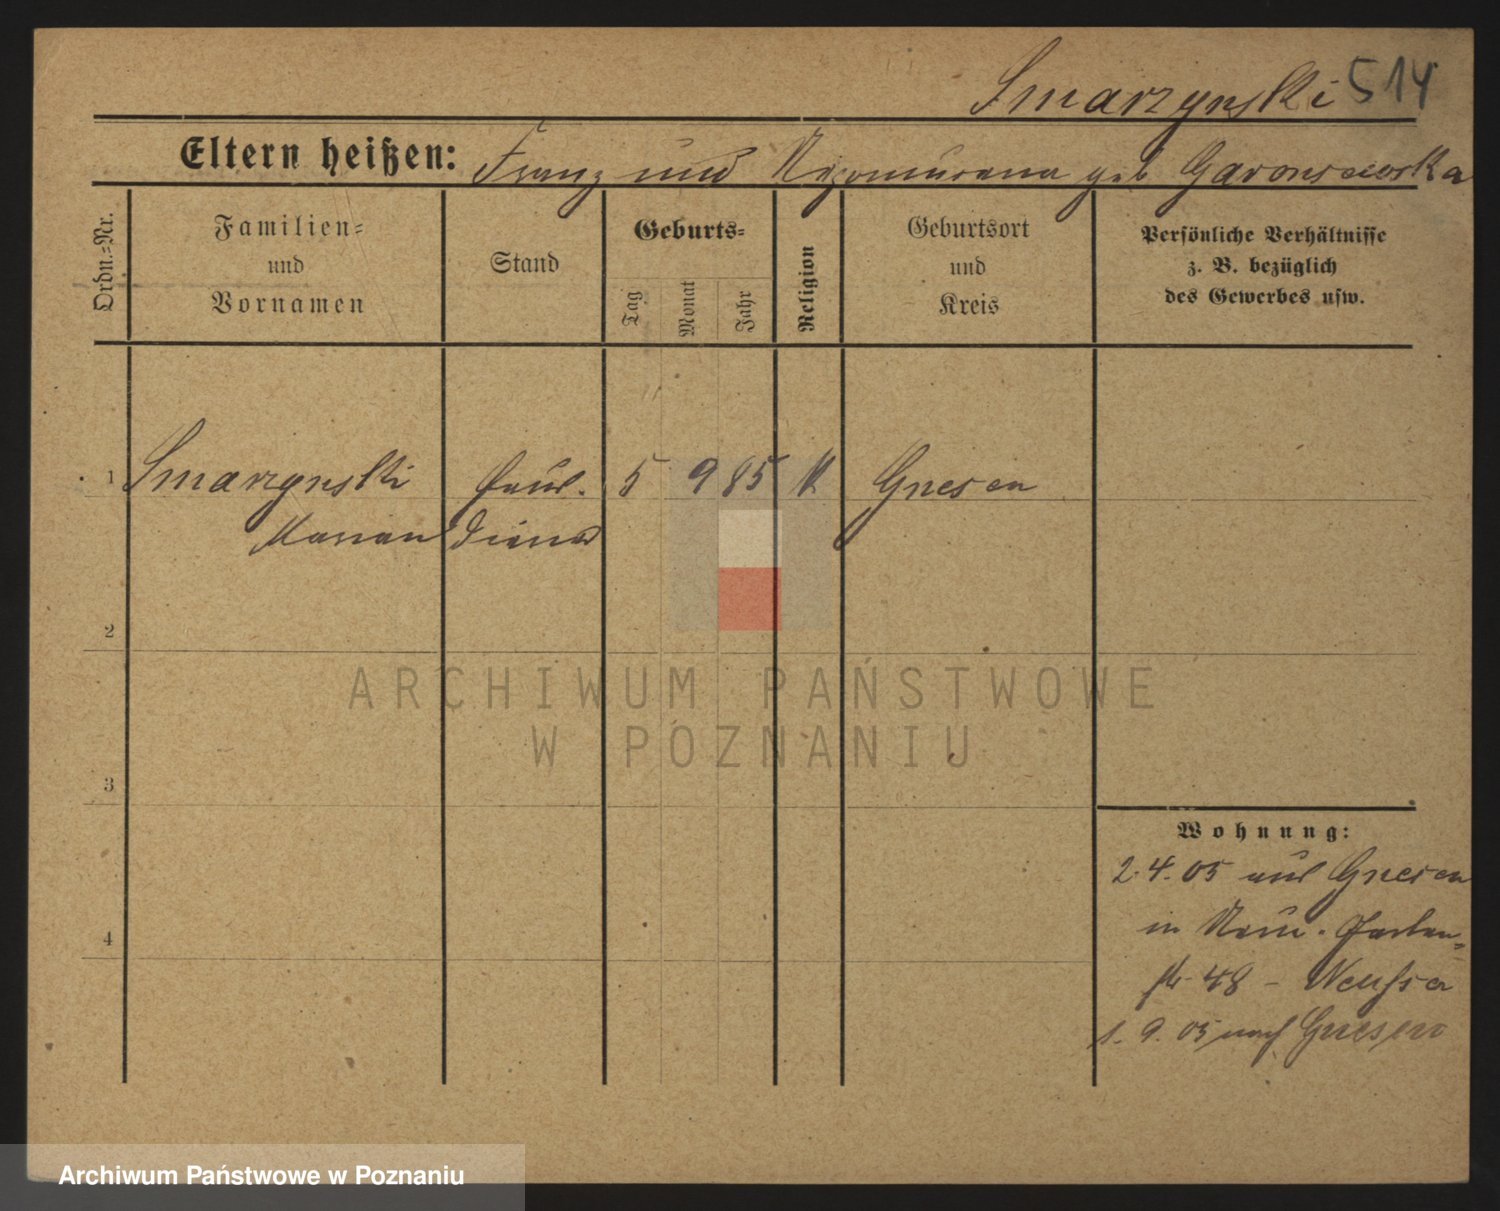 Smarzynski 514
Eltern heißen: Franz und geb Gavonskowska
Ordn.-Nr.
Familien-
und
Vornamen
Stand
Geburts-
Tag
Monat
Jahr
Religion
Geburtsort
und
Kreis
Persönliche Verhältnisse
z. B. bezüglich
des Gewerbes usw.
1 Smarzynski Haus- 5 9 85 K Gnesen
Marian diener
2
3
4
Wohnung:
2.4.05 aus Gnesen
in
str 48 -
1. 9. 05 nach Gnesen
ARCHIWUM PAŃSTWOWE
W POZNANIU
Archiwum Państwowe w Poznaniu